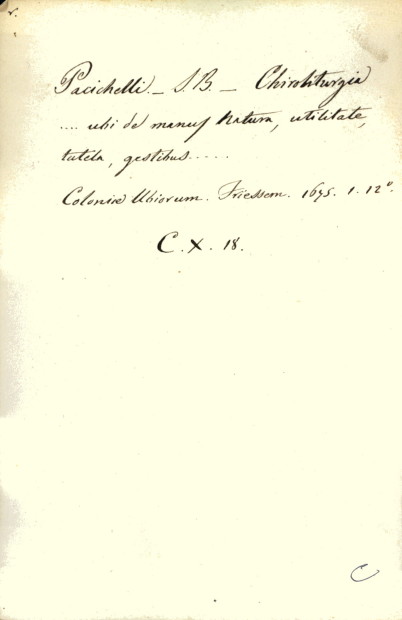 r.
Pacichelli _ J. B. _ Chiroliturgia
.... ubi de manus natura, utilitate,
tutela, gestibus.....
Coloniæ Ubiorum. Friessem. 1675. 1. 12°.
C. X. 18.
C